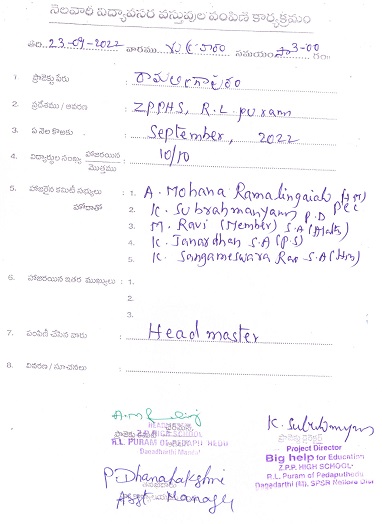 నెలవారీ విద్యావసర వస్తువుల పంపిణీ కార్యక్రమం
తేది: 23-09-2022 వారము శుక్రవారం సమయం సా 3-00 గం.
1. ప్రాజెక్టు పేరు : రామలింగాపురం
2. ప్రదేశము / ఆవరణ : ZPPHS, R.L. puram
3. ఏ నెల కొఱకు : September, 2022
4. విద్యార్థుల సంఖ్య హాజరయిన / మొత్తము : 10/10
5. హాజరైన కమిటీ సభ్యులు హోదాతో : 1. A. Mohana Ramalingaiah (HM)
2. K. Subrahmanyam P.D
3. M. Ravi (Member) S.A (Maths)
4. K. Janardhan S.A (P.S)
5. K. Sangameswara Rao S.A (Hin)
6. హాజరయిన ఇతర ముఖ్యులు : 1.
2.
3.
7. పంపిణీ చేసిన వారు : Head master
8. వివరణ / సూచనలు :
Z.P.P. HIGH SCHOOL
R.L. PURAM OF PEDAPUTHEDU
Dagadarthi Mandal
P. Dhanalakshmi
Asst Manager
K. Subrahmanyam
ప్రాజెక్టు డైరెక్టర్
Project Director
Big help for Education
Z.P.P. HIGH SCHOOL-
R.L. Puram of Pedaputhedu
Dagadarthi (M), SPSR Nellore Dist